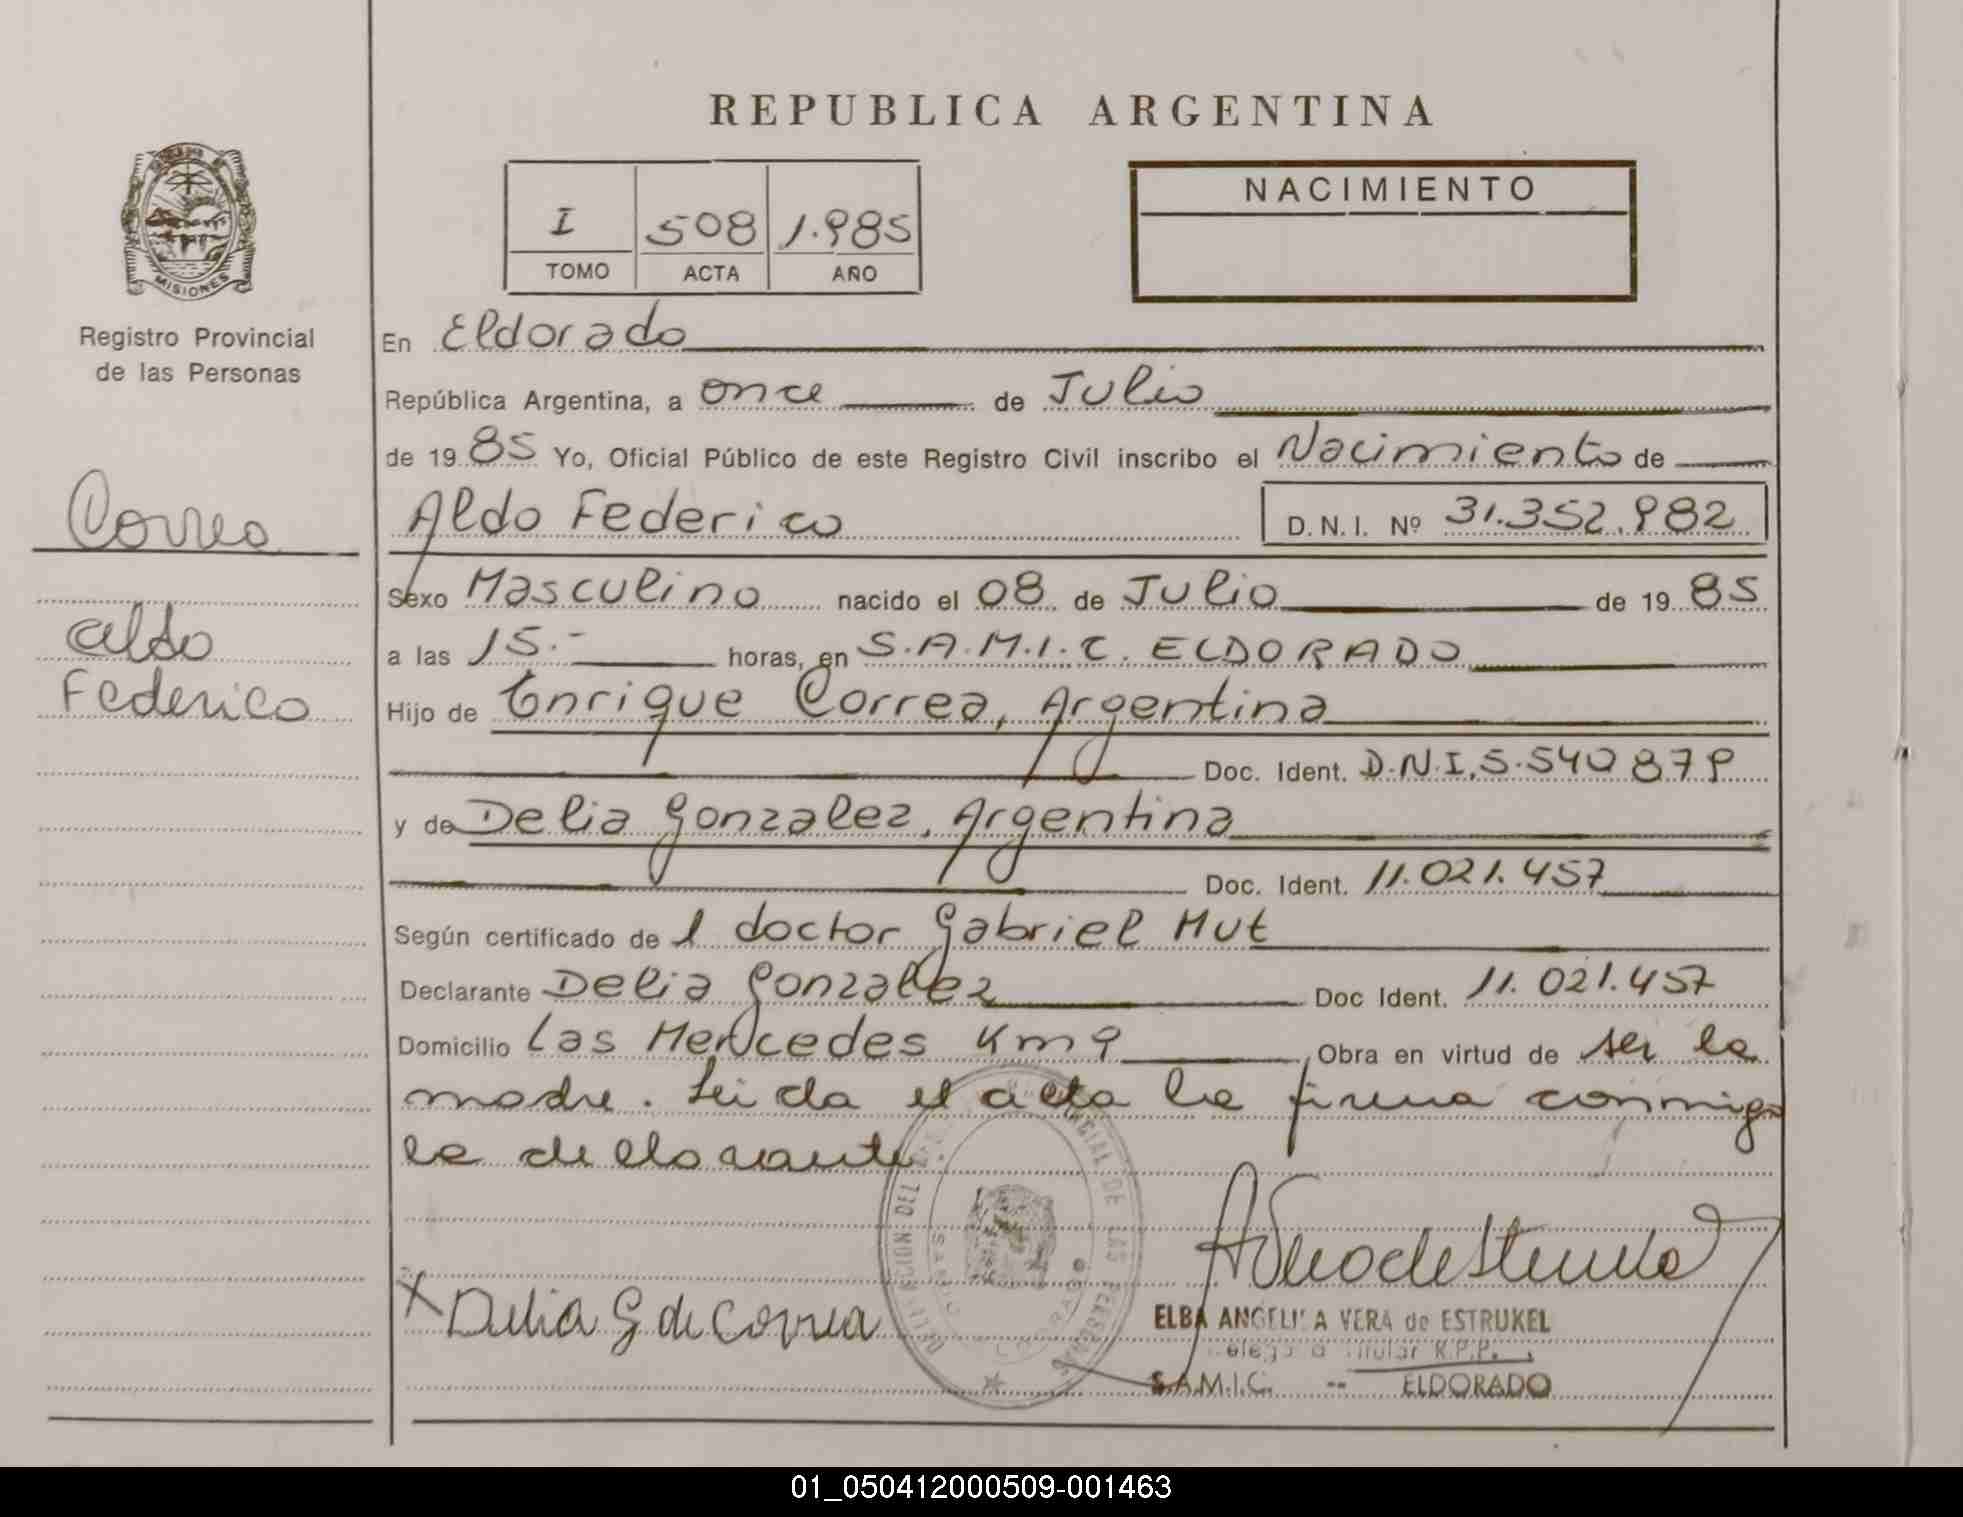 REPUBLICA ARGENTINA
I 508 1.985
TOMO ACTA AÑO
NACIMIENTO
MISIONES
Registro Provincial
de las Personas
Correa
Aldo
Federico
En Eldorado
República Argentina, a once de Julio
de 1985 Yo, Oficial Público de este Registro Civil inscribo el Nacimiento de
Aldo Federico D.N.I. Nº 31.352.982
Sexo Masculino nacido el 08 de Julio de 1985
a las 15.- horas, en S.A.M.I.C. ELDORADO
Hijo de Enrique Correa, Argentina
Doc. Ident. D.N.I. 5.540 879
y de Delia Gonzalez, Argentina
Doc. Ident. 11.021.457
Según certificado de l doctor Gabriel Mut
Declarante Delia Gonzalez Doc Ident. 11.021.457
Domicilio Las Mercedes Km 9 Obra en virtud de ser la
madre. Leida el acta la firma conmigo
la declarante
X Delia G de Correa
DELEGACION DEL PERSONAS
ELBA ANGELICA VERA de ESTRUKEL
Titular R.P.P.
S.A.M.I.C. -- ELDORADO
01_050412000509-001463